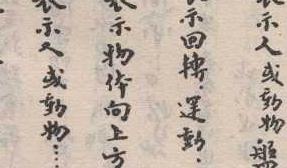 表示人或動物盤
示回轉．運動．
表示物体向上方
表示人或動物……